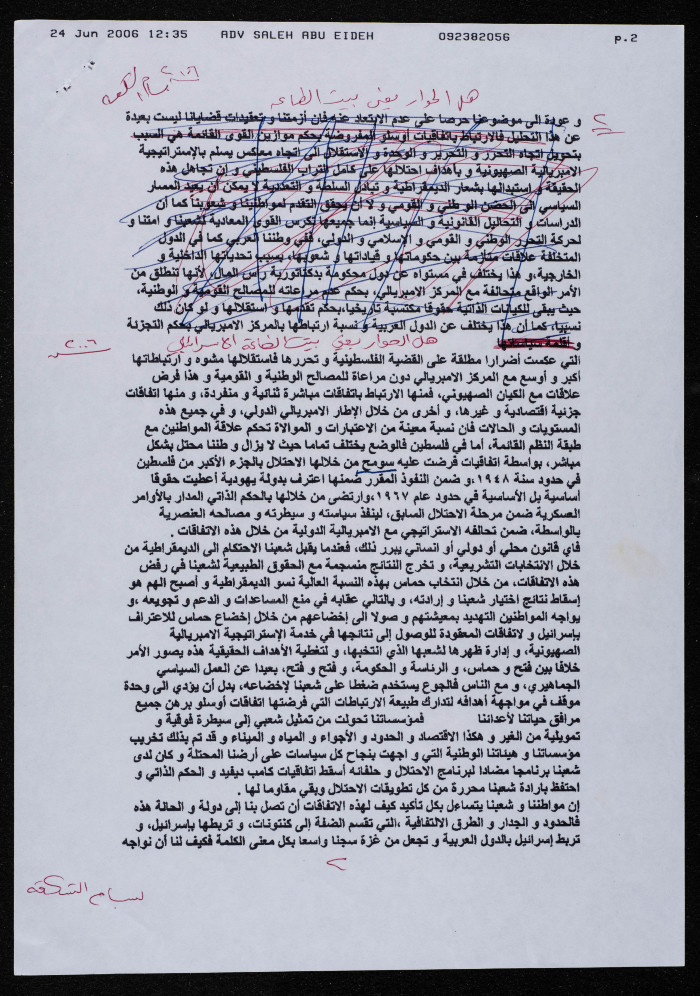 24 Jun 2006 12:35 ADV SALEH ABU EIDEH 092382056 p.2
هل الحوار يعني بيت الطاعة
و عودة الى موضوعنا حرصا على عدم الابتعاد عنه فان أزمتنا و تعقيدات قضايانا ليست بعيدة
عن هذا التحليل فالارتباط باتفاقيات أوسلو المفروضة بحكم موازين القوى القائمة هي السبب
بتحويل اتجاه التحرر و التحرير و الوحدة و الاستقلال الى اتجاه معاكس يسلم بالإستراتيجية
الامبريالية الصهيونية و بأهداف احتلالها على كامل التراب الفلسطيني و إن تجاهل هذه
الحقيقة و إستبدالها بشعار الديمقراطية و تبادل السلطة و التعددية لا يمكن أن يعيد المسار
السياسي الى الحضن الوطني و القومي و لا أن يحقق التقدم لمواطنينا و شعوبنا كما أن
الدراسات و التحاليل القانونية و السياسية إنما جميعها تكرس القوى المعادية لشعبنا و امتنا و
لحركة التحرر الوطني و القومي و الإسلامي و الدولي، ففي وطننا العربي كما في الدول
المتخلفة علاقات متأزمة بين حكوماتها و قياداتها و شعوبها، بسبب تحدياتها الداخلية و
الخارجية،و هذا يختلف في مستواه عن دول محكومة بدكتاتورية رأس المال، لأنها تنطلق من
الأمر الواقع متحالفة مع المركز الامبريالي، بحكم عدم مراعاته للمصالح القومية و الوطنية،
حيث يبقى للكيانات الذاتية حقوقا مكتسبة تاريخيا،بحكم تقدمها و استقلالها و لو كان ذلك
نسبيا، كما أن هذا يختلف عن الدول العربية و نسبة ارتباطها بالمركز الامبريالي بحكم التجزئة
هل الحوار يعني بيت الطاعة الاسرائيلي
٢٠٠٦
التي عكست أضرارا مطلقة على القضية الفلسطينية و تحررها فاستقلالها مشوه و ارتباطاتها
أكبر و أوسع مع المركز الامبريالي دون مراعاة للمصالح الوطنية و القومية و هذا فرض
علاقات مع الكيان الصهيوني، فمنها الارتباط باتفاقات مباشرة ثنائية و منفردة، و منها إتفاقات
جزئية اقتصادية و غيرها، و أخرى من خلال الإطار الامبريالي الدولي، و في جميع هذه
المستويات و الحالات فان نسبة معينة من الاعتبارات و الموالاة تحكم علاقة المواطنين مع
طبقة النظم القائمة، أما في فلسطين فالوضع يختلف تماما حيث لا يزال و طننا محتل بشكل
مباشر، بواسطة اتفاقيات فرضت عليه سومح من خلالها الاحتلال بالجزء الأكبر من فلسطين
في حدود سنة ١٩٤٨،و ضمن النفوذ المقرر ضمنها اعترف بدولة يهودية أعطيت حقوقا
اساسية بل الأساسية في حدود عام ١٩٦٧،وارتضى من خلالها بالحكم الذاتي المدار بالأوامر
العسكرية ضمن مرحلة الاحتلال السابق، لينفذ سياسته و سيطرته و مصالحه العنصرية
بالواسطة، ضمن تحالفه الاستراتيجي مع الامبريالية الدولية من خلال هذه الاتفاقات .
فأي قانون محلي أو دولي أو انساني يبرر ذلك، فعندما يقبل شعبنا الاحتكام الى الديمقراطية من
خلال الانتخابات التشريعية، و تخرج النتائج منسجمة مع الحقوق الطبيعية لشعبنا في رفض
هذه الاتفاقات، من خلال انتخاب حماس بهذه النسبة العالية نسو الديمقراطية و أصبح الهم هو
إسقاط نتائج اختيار شعبنا و إرادته، و بالتالي عقابه في منع المساعدات و الدعم و تجويعه ،و
يواجه المواطنين التهديد بمعيشتهم و صولا الى إخضاعهم من خلال إخضاع حماس للاعتراف
بإسرائيل و لاتفاقات المعقودة للوصول إلى نتائجها في خدمة الإستراتيجية الامبريالية
الصهيونية، و إدارة ظهرها لشعبها الذي انتخبها، و لتغطية الأهداف الحقيقية هذه يصور الأمر
خلافا بين فتح و حماس، و الرئاسة و الحكومة، و فتح و فتح، بعيدا عن العمل السياسي
الجماهيري، و مع الناس فالجوع يستخدم ضغطا على شعبنا لإخضاعه، بدل أن يؤدي الى وحدة
موقف في مواجهة أهدافه لتدارك طبيعة الارتباطات التي فرضتها اتفاقات أوسلو برهن جميع
مرافق حياتنا لأعدائنا فمؤسساتنا تحولت من تمثيل شعبي إلى سيطرة فوقية و
تمويلية من الغير و هكذا الاقتصاد و الحدود و الأجواء و المياه و الميناء و قد تم بذلك تخريب
مؤسساتنا و هيئاتنا الوطنية التي و اجهت بنجاح كل سياسات على أرضنا المحتلة و كان لدى
شعبنا برنامجا مضادا لبرنامج الاحتلال و حلفائه أسقط اتفاقيات كامب ديفيد و الحكم الذاتي و
احتفظ بارادة شعبنا محررة من كل تطويقات الاحتلال وبقي مقاوما لها .
إن مواطننا و شعبنا يتساءل بكل تأكيد كيف لهذه الاتفاقات أن تصل بنا إلى دولة و الحالة هذه
فالحدود و الجدار و الطرق الالتفافية ،التي تقسم الضفة إلى كنتونات، و تربطها بإسرائيل، و
تربط إسرائيل بالدول العربية و تجعل من غزة سجنا واسعا بكل معنى الكلمة فكيف لنا أن نواجه
٢
بسام الشكعة